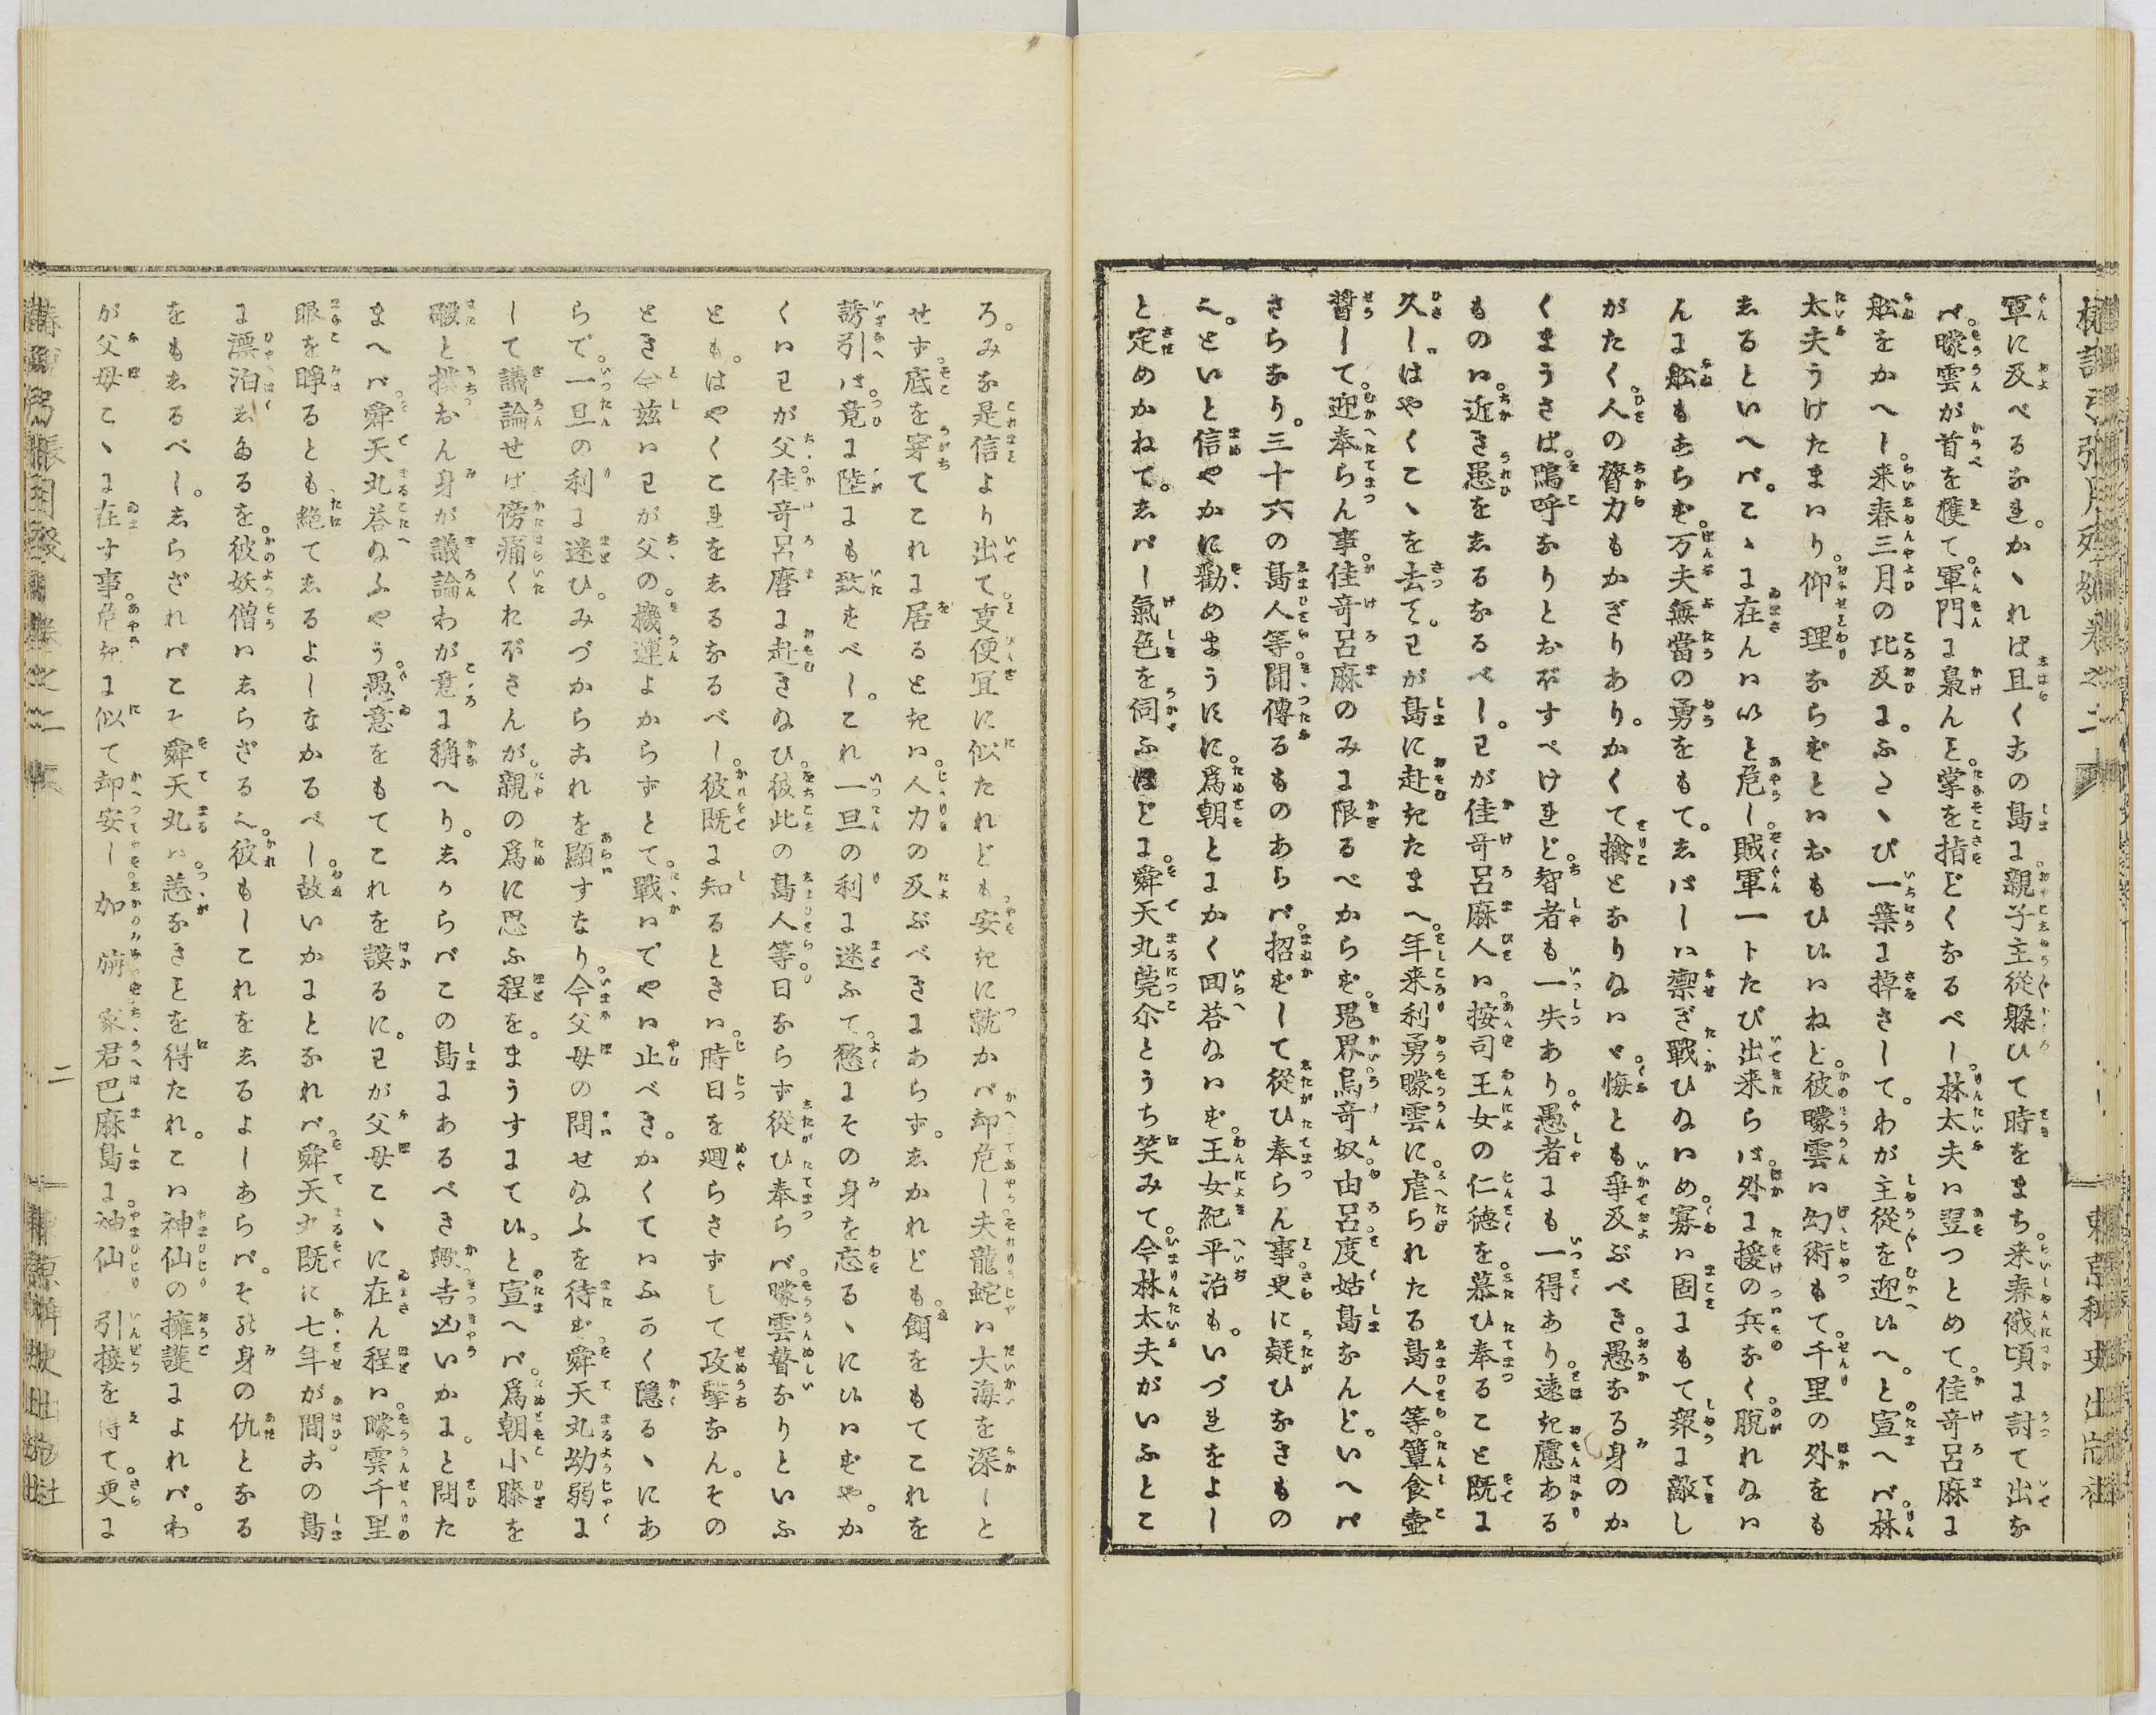 軍に及べるなれ。かゝれば且くこの島に親子主從躱ひて時をまち。来春俄頃に討て出な
バ。曚雲が首を獲て。軍門に梟んこと。掌を指どくなるべし。林太夫ハ翌つとめて。佳奇呂麻に
舩をかへし。来春三月の比及に。ふたゝび一葉に掉さして。わが主從を迎ひへ。と宣へバ。林
太夫うけたまハり。仰理ならずとハおもひひハねど。彼曚雲ハ幻術もて。千里の外をも
しるといへバ。こゝに在んハいと危し。賊軍一トたび出来らバ。外に援の兵なく。脱れ給ハ
んに舩もあらず。万夫無當の勇をもて。しバしハ禦ぎ戰ひ給ハめ。寡ハ固にもて衆に敵し
がたく。人の膂力もかぎりあり。かくて擒となり給ハヾ。悔とも争及ぶべき。愚なる身のか
くまうさば。嗚呼なりとおぼすべけれど。智者も一失あり。愚者にも一得あり。遠き慮ある
ものハ。近き愚をしるなるべし。わが佳奇呂麻人ハ。按司王女の仁徳を。慕ひ奉ること既に
久し。はやくこゝを去て。わが島に赴きたまへ。年来利勇曚雲に。虐られたる島人等。簞食壷
醤して。迎奉らん事。佳奇呂麻のみに限るべからず。鬼界烏奇奴由呂。度姑島なんど。いへバ
さらなり。三十六の島人等。聞傳るものあらバ。招ずして從ひ奉らん事。更に疑ひなきもの
へ。といと信やかに勸めまうにに。爲朝とにかく回荅給ハず。王女紀平治も。いづれをよし
と定めかねて。しバし氣色を伺ふほどに。舜天丸莞尓とうち笑みて。今林太夫がいふとこ
ろ。みな是信より出て。
便宜に似たれども。安きに就かバ却危し。夫龍蛇ハ大海を深しと
せず。底を穿てこれに居るときハ。人力の及ぶべきにあらず。しかれども。餌をもてこれを
誘引バ。竟に陸にも致すべし。これ一旦の利に迷ふて。慾にその身を忘るゝにひハずや。か
くハわが父。佳奇呂麿に赴き給ひ。彼此の島人等。日ならず從ひ奉らバ。曚雲瞽なりといふ
とも。はやくこれをしるなるべし。彼既に知るときハ。時日を廻らさずして攻撃なん。その
とき今茲ハわが父の。機運よからずとて。戰ハでやハ止べき。かくてハふかく隱るゝにあ
らで。一旦の利に迷ひ。みづからおれを顯すなり。今父母の問せ給ふを待ず。舜天丸幼弱に
して議論せば。傍痛くおぼさんが。親の爲に思ふ程を。まうすにてひ。と宣へバ。爲朝小膝を
礑と撲。おん身が議論わが意に稱へり。しからバこの島にあるべき歟。吉凶いかに。と問た
まへバ。舜天丸荅給ふやう。愚意をもてこれを謨るに。わが父母こゝに在ん程ハ。曚雲千里
眼を睜るとも。絶てしるよしなかるべし。故いかにとなれバ。舜天丸既に七年が間。おの島
に漂泊しぬるを。彼妖僧ハしらざるへ。彼もしこれをしるよしあらバ。その身の仇となる
をもしるべし。しらざれバこそ舜天丸ハ。恙なきことを得たれ。こハ神仙の擁護によれバ。わ
が父母こゝに在す事。危きに似て却安し。加旃家君巴麻島に。神仙引接を得て。更に
二